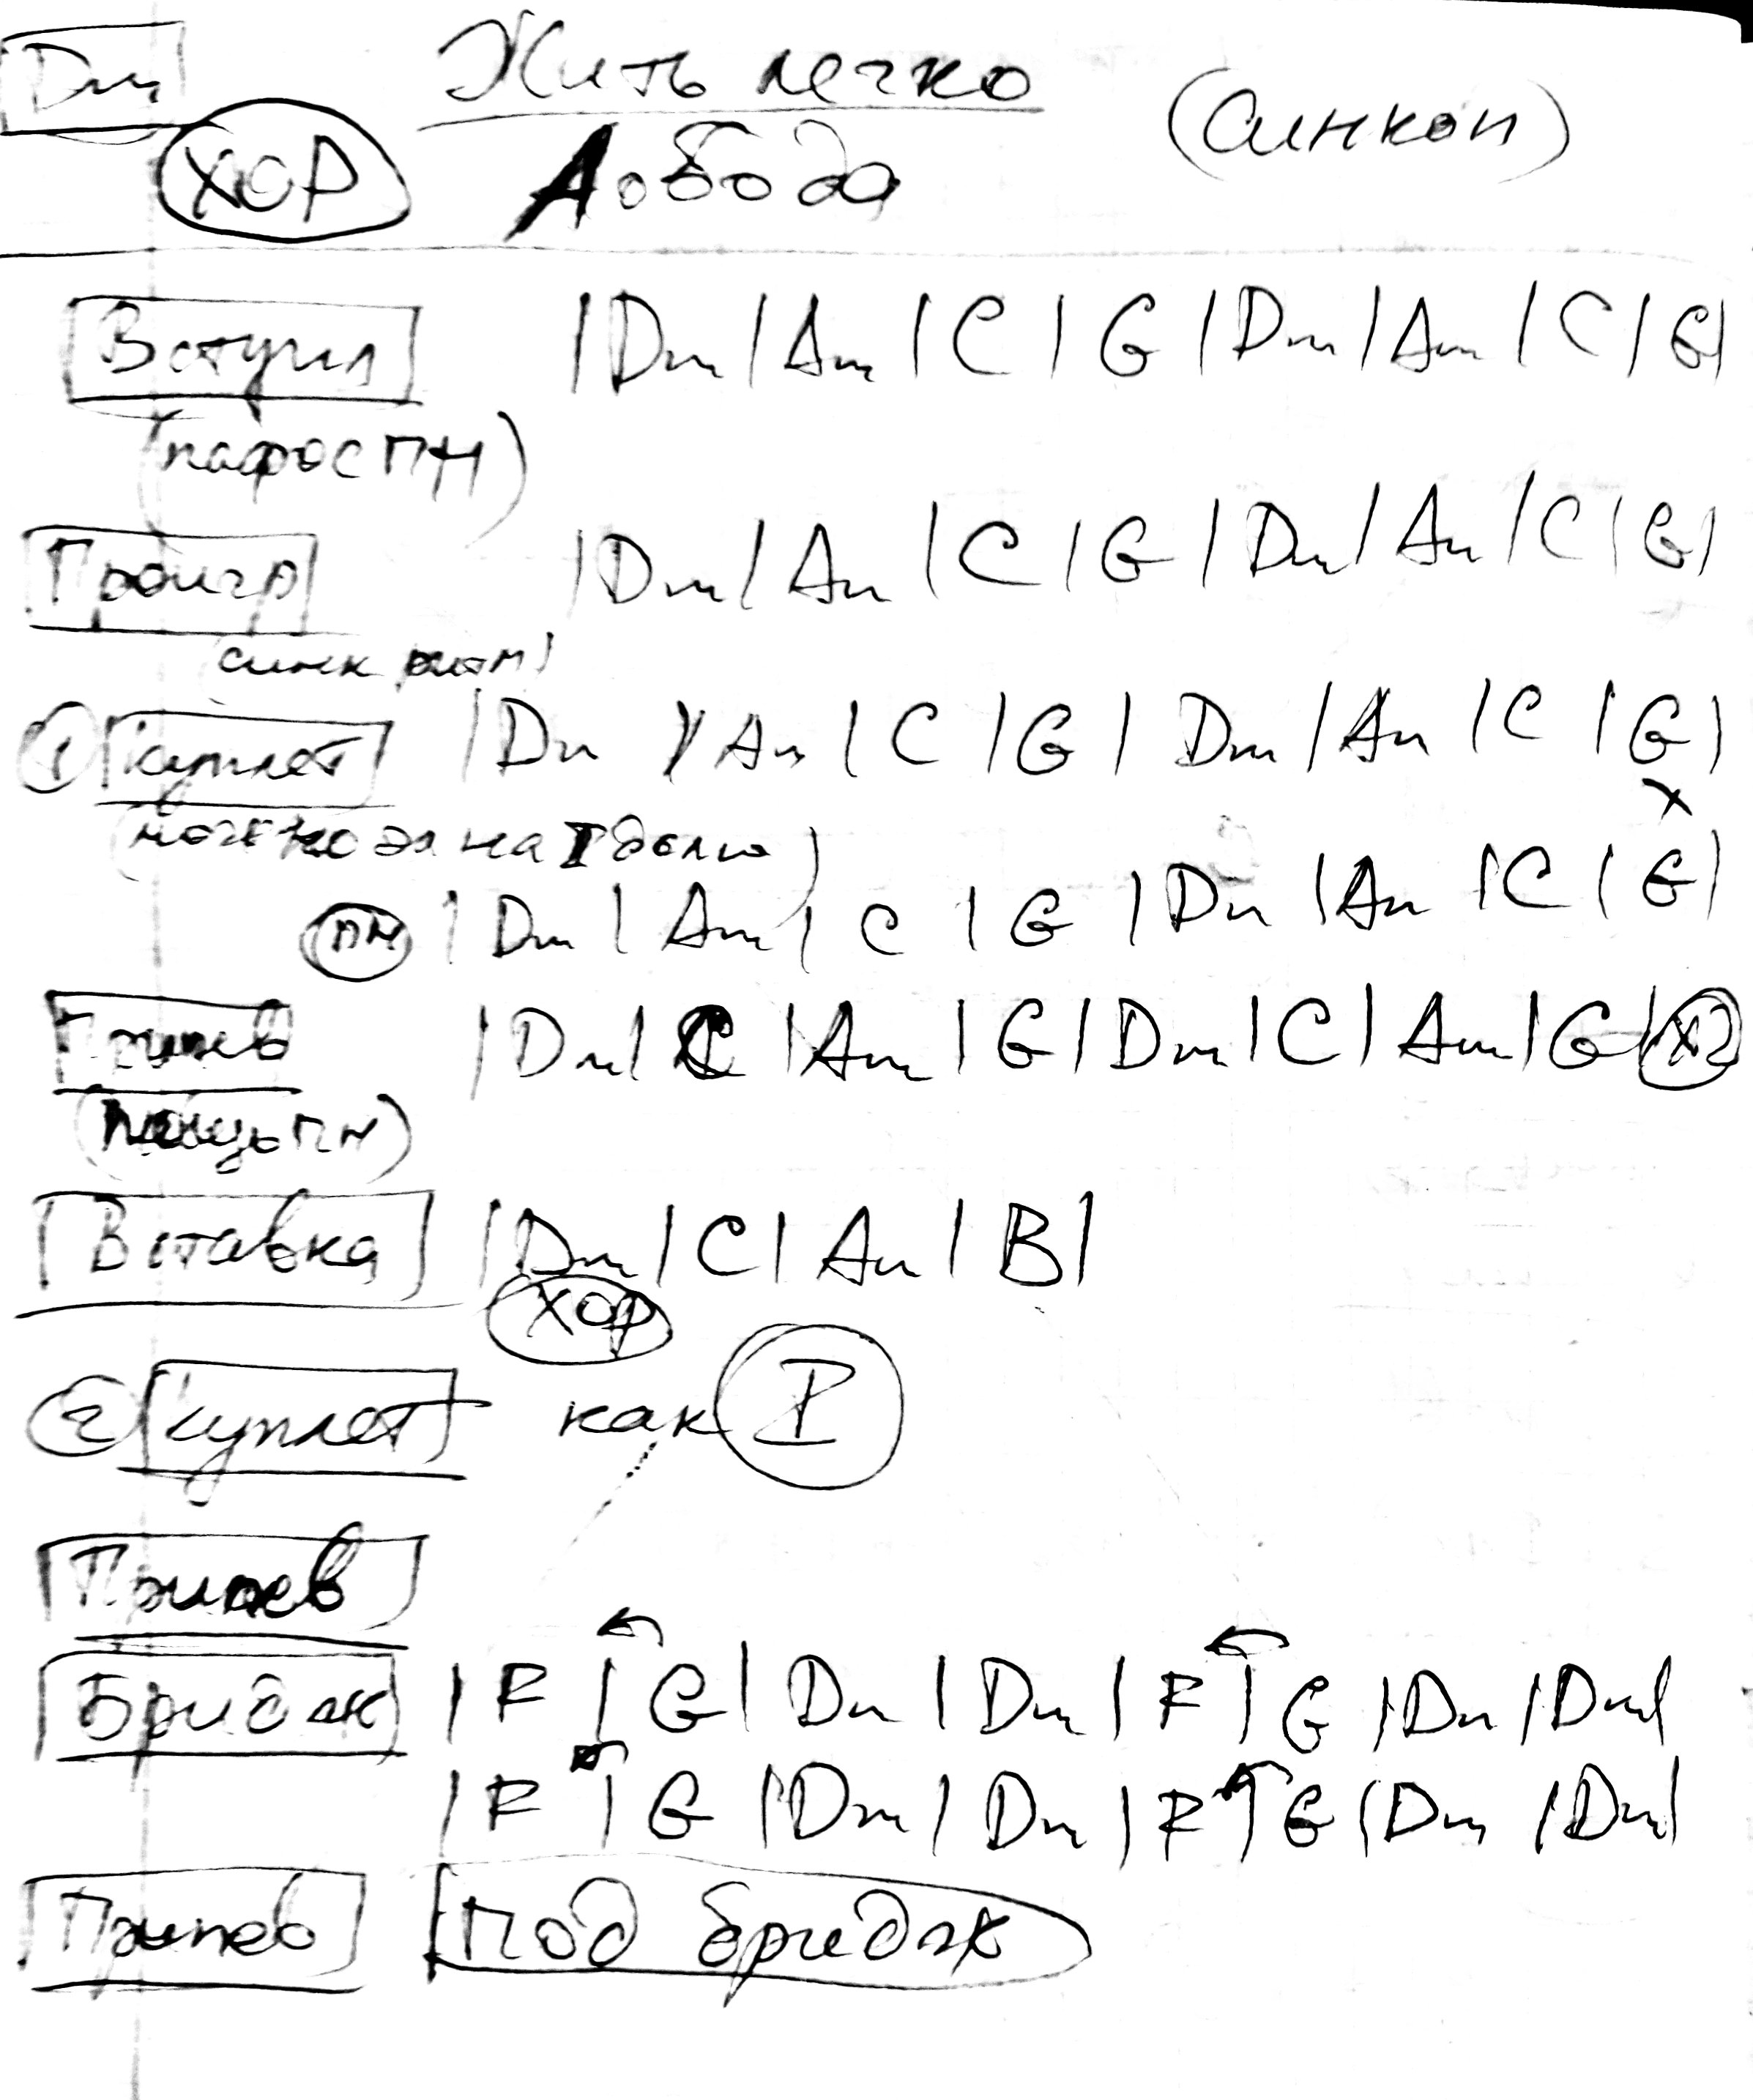 Dm Жить легко (синкоп)
ХОР Лобода
Вступл |Dm|Am|C|G|Dm|Am|C|G|
(пафос ПН)
Проигр |Dm|Am|C|G|Dm|Am|C|G|
синк ритм)
1 куплет |Dm|Am|C|G|Dm|Am|C|G|
х
на I долю)
ПН |Dm|Am|C|G|Dm|Am|C|G|
Припев |Dm|C|Am|G|Dm|C|Am|G| х2
ПН)
Вставка |Dm|C|Am|B|
ХОР
2 куплет как I
Припев
Бридж |F|G|Dm|Dm|F|G|Dm|Dm|
|F|G|Dm|Dm|F|G|Dm|Dm|
Припев под бридж